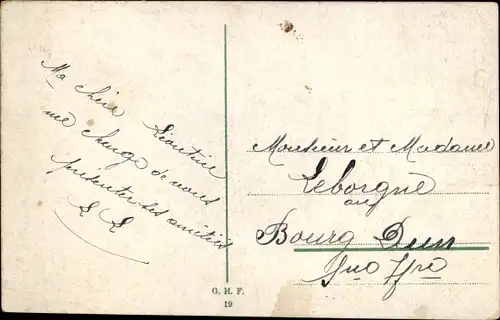 Ma chère Léontine
me charge de vous
présenter ses amitiés
L L
Monsieur et Madame
Leborgne
au
Bourg Dun
Sne Infre
G. H. F.
19